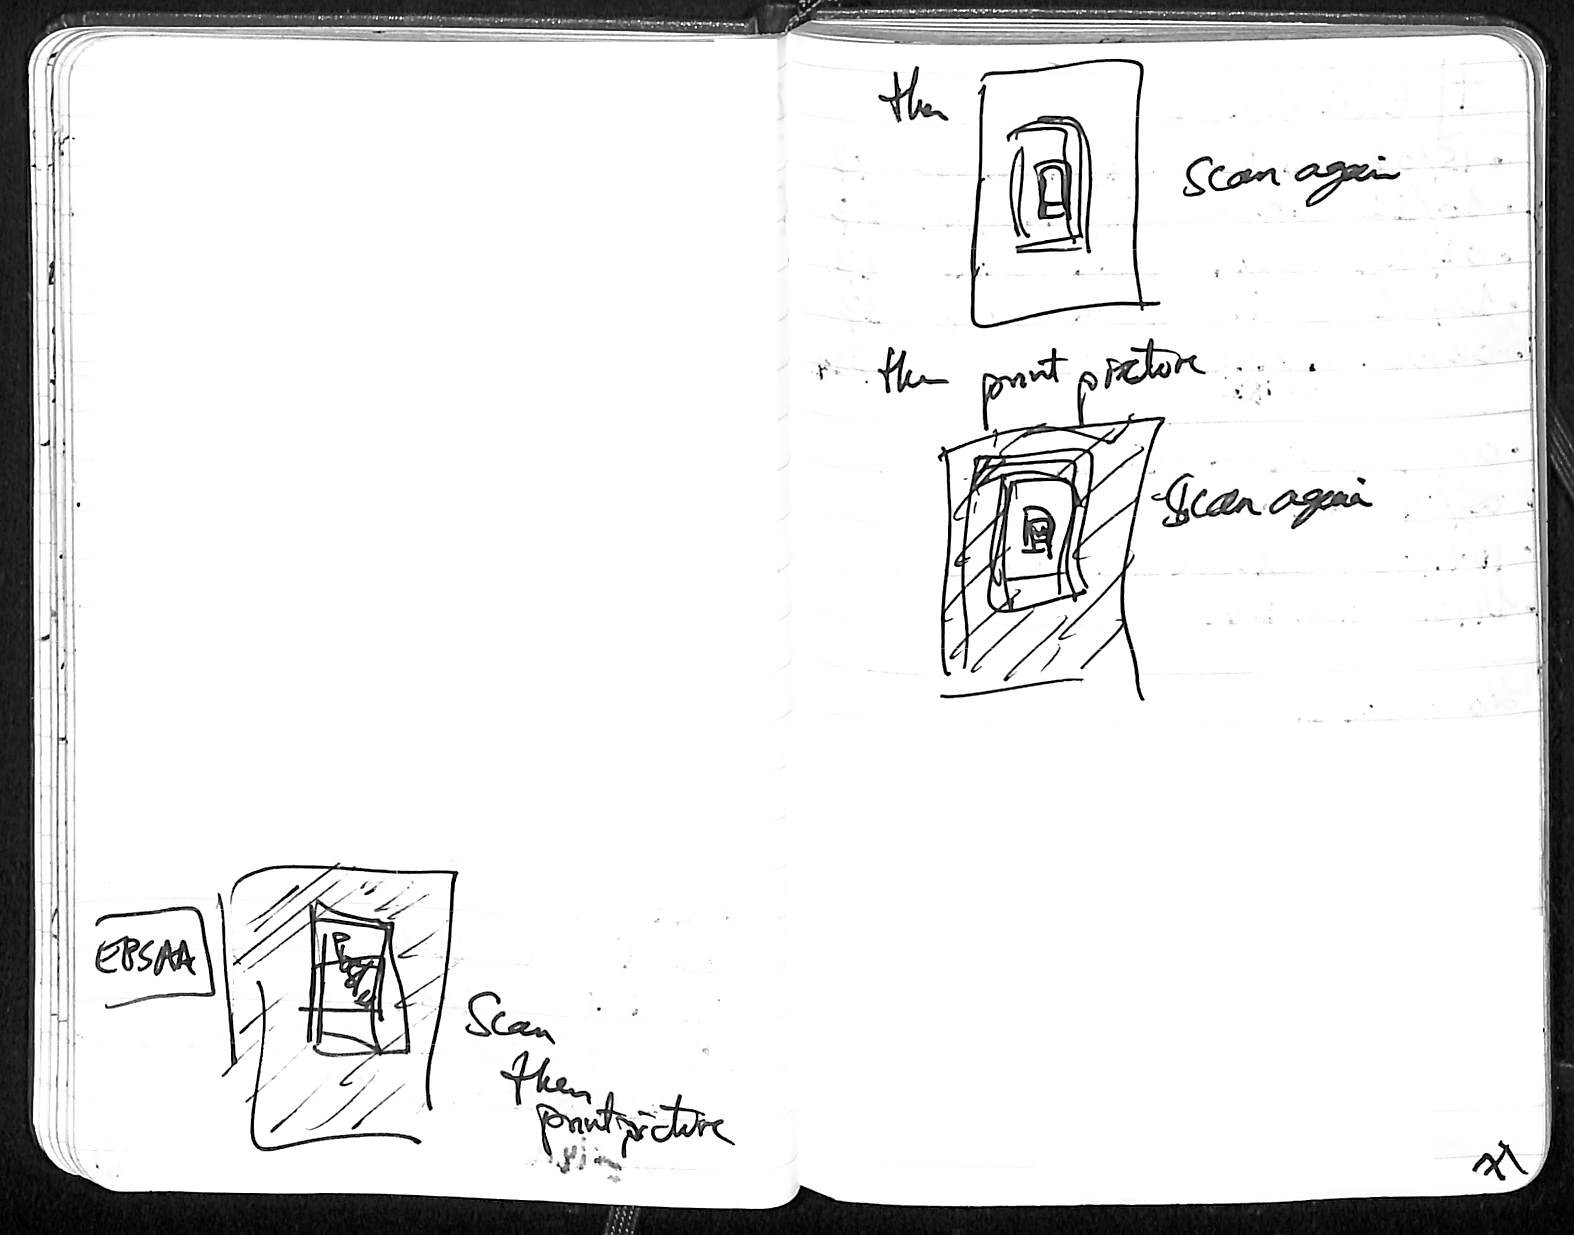 Scan
then
print picture
then
Scan again
then print picture
Scan again
71